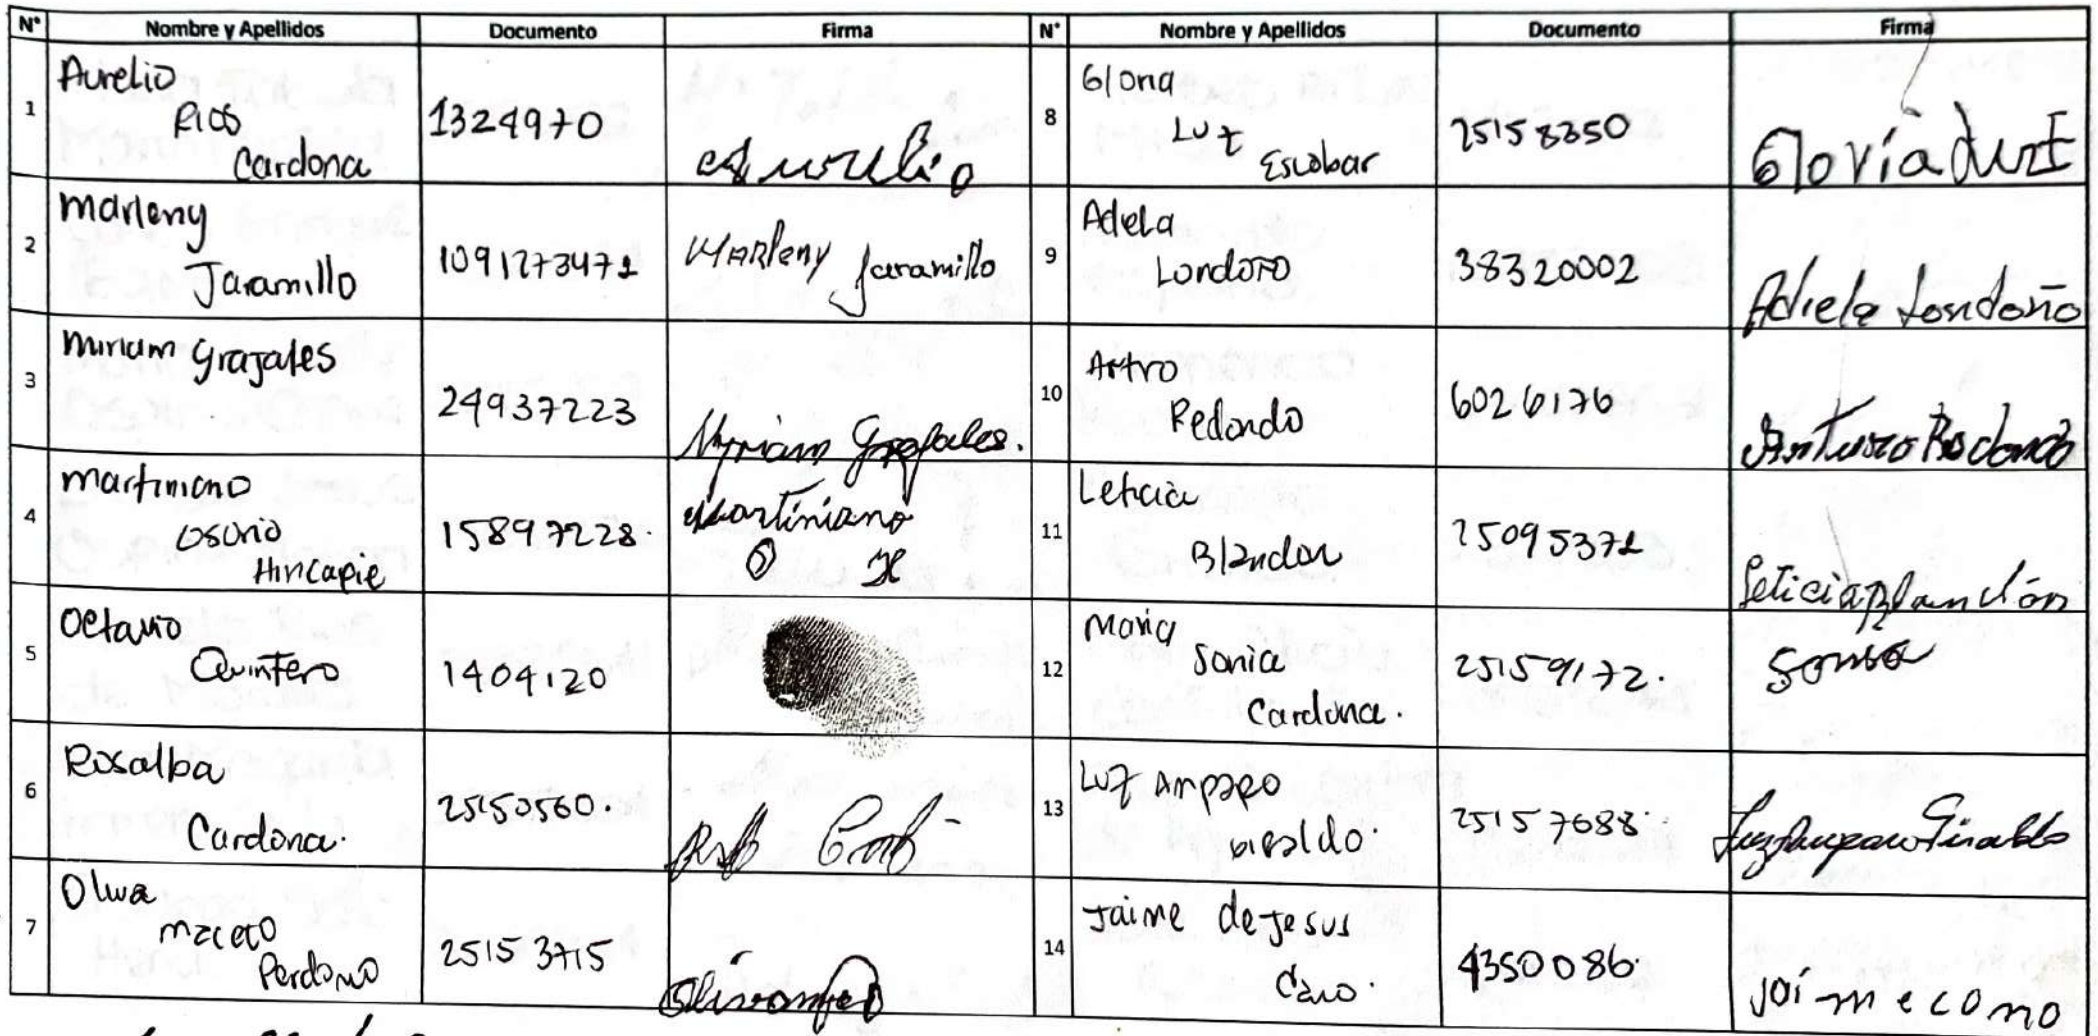 N° Nombre y Apellidos Documento Firma N° Nombre y Apellidos Documento Firma
1 Aurelio Rios Cardona 1324970 Aurelio
2 Marleny Jaramillo 1091273471 Marleny Jaramillo
3 Miriam Grajales 24937223 Myriam Grajales.
4 martiniano osorio Hincapie 15897228. Martiniano O H
5 Octavio Quintero 1404120
6 Rosalba Cardona. 25150560.
7 Oliva maceto Perdomo 25153715
8 Gloria Luz Escobar 25158350 Gloria Luz E
9 Adiela Londoño 38320002 Adiela Londoño
10 Artro Redondo 6026176 Arturo Redondo
11 Leticia Blandon 25095371 Leticia Blandón
12 Maria Sonia Cardona. 25159172. Sonia
13 Luz Amparo Giraldo. 25157688. Luz Amparo Giraldo
14 Jaime de Jesus Cano. 4350086. jaime cano